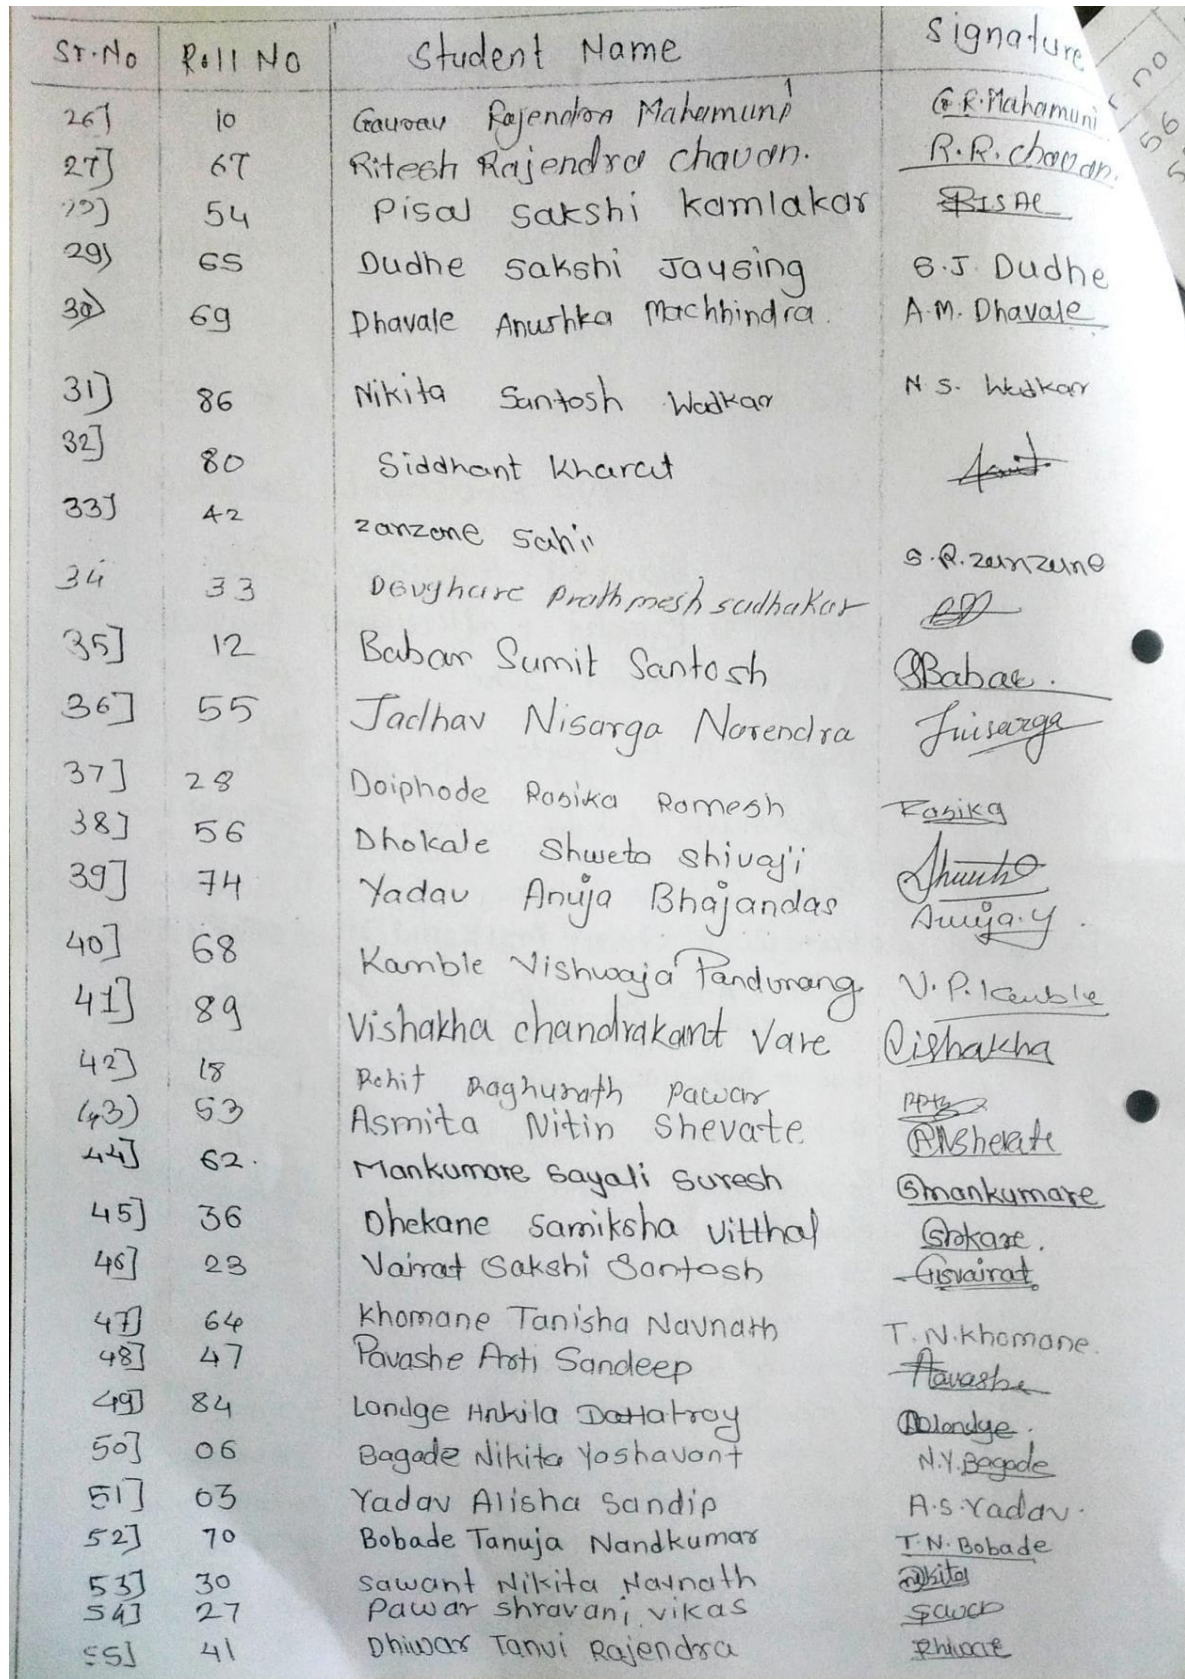 Sr.No Roll No Student Name Signature
26] 10 Gaurav Rajendra Mahamuni G.R.Mahamuni
27] 67 Ritesh Rajendra chavan. R.R.chavan.
54 Pisal sakshi kamlakar PISAL
29) 65 Dudhe sakshi Jaysing S.J. Dudhe
30) 69 Dhavale Anushka Machhindra. A.M. Dhavale
31] 86 Nikita Santosh Wadkar N.S. Wadkar
32] 80 Siddhant Kharat
33] 42 zanzane Sahil S.R.zanzane
34 33 Devghare Prathmesh sudhakar
35] 12 Babar Sumit Santosh SBabar.
36] 55 Jadhav Nisarga Narendra Jnisarga
37] 28 Doiphode Rasika Ramesh Rasika
38] 56 Dhokale Shweta shivaji
39] 74 Yadav Anuja Bhajandas Anuja.y.
40] 68 Kamble Vishwaja Pandurang V.P.Kamble
41] 89 Vishakha chandrakant Vare Vishakha
42] 18 Rohit Raghunath Pawar
43) 53 Asmita Nitin Shevate ANShevate
44] 62. Mankumare Sayali Suresh Smankumare
45] 36 Dhekane Samiksha Vitthal
46] 23 Vairat Sakshi Santosh
47] 64 Khomane Tanisha Navnath T.N.Khomane.
48] 47 Pavashe Arti Sandeep
49] 84 Londge Dattatray
50] 06 Bagade Nikita Yashavant N.Y.Bagade
51] 03 Yadav Alisha Sandip A.S.Yadav.
52] 70 Bobade Tanuja Nandkumar T.N.Bobade
53] 30 Sawant Nikita Navnath Nikita
54] 27 Pawar shravani vikas
55] 41 Dhiwar Tanvi Rajendra